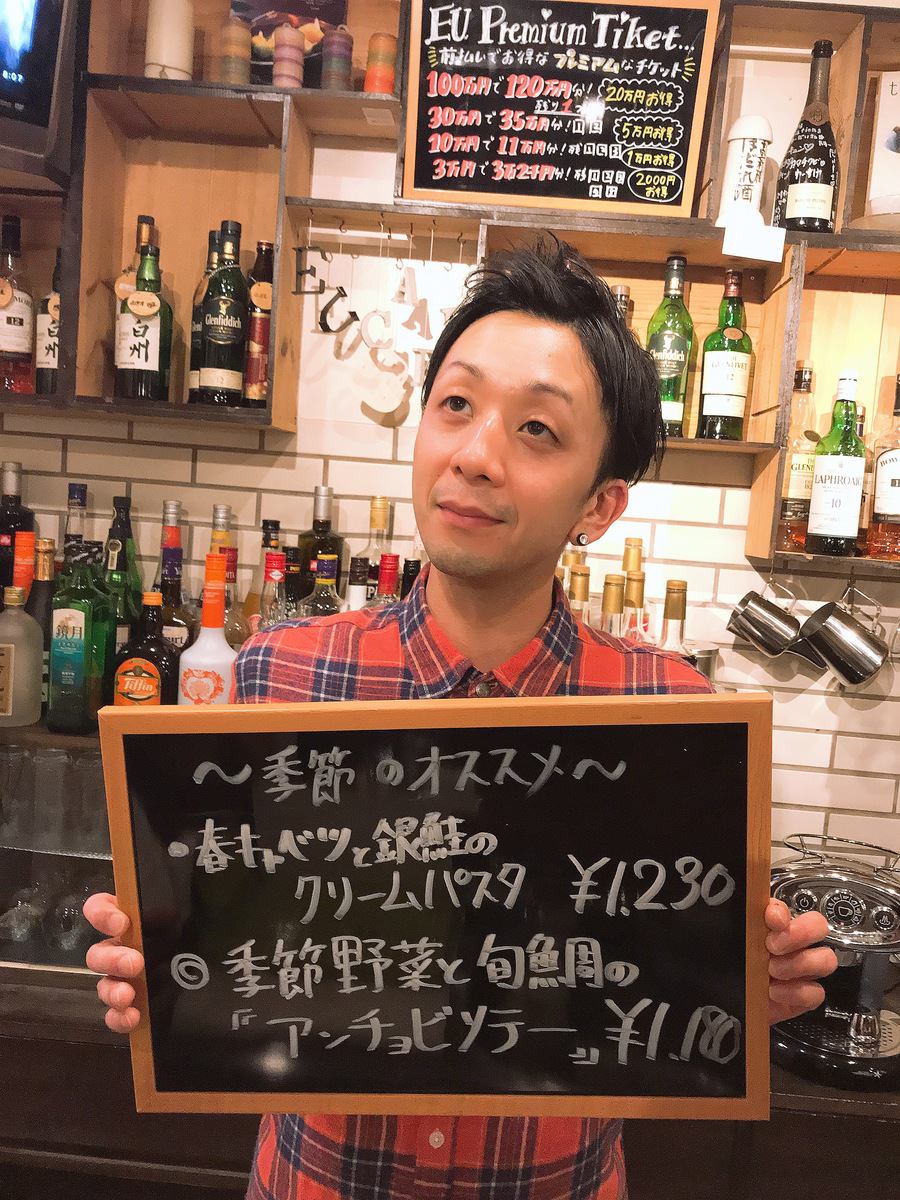 EU Premium Tiket...
前払いでお得なプレミアムなチケット
100万円で120万円分! 20万円お得
残り1
30万円で35万円分! 5万円お得
10万円で11万円分! 残 1万円お得
3万円で3万2千円分! 残 2000円お得
8:07
EU
CASA
白州
Glenfiddich
12
Glenfiddich
THE GLENLIVET
12
LAPHROAIG
10
鏡月
Tiffin
～季節のオススメ～
・春キャベツと銀鮭の
クリームパスタ ¥1.230
◎季節野菜と旬鯛の
『アンチョビソテー』¥1.180